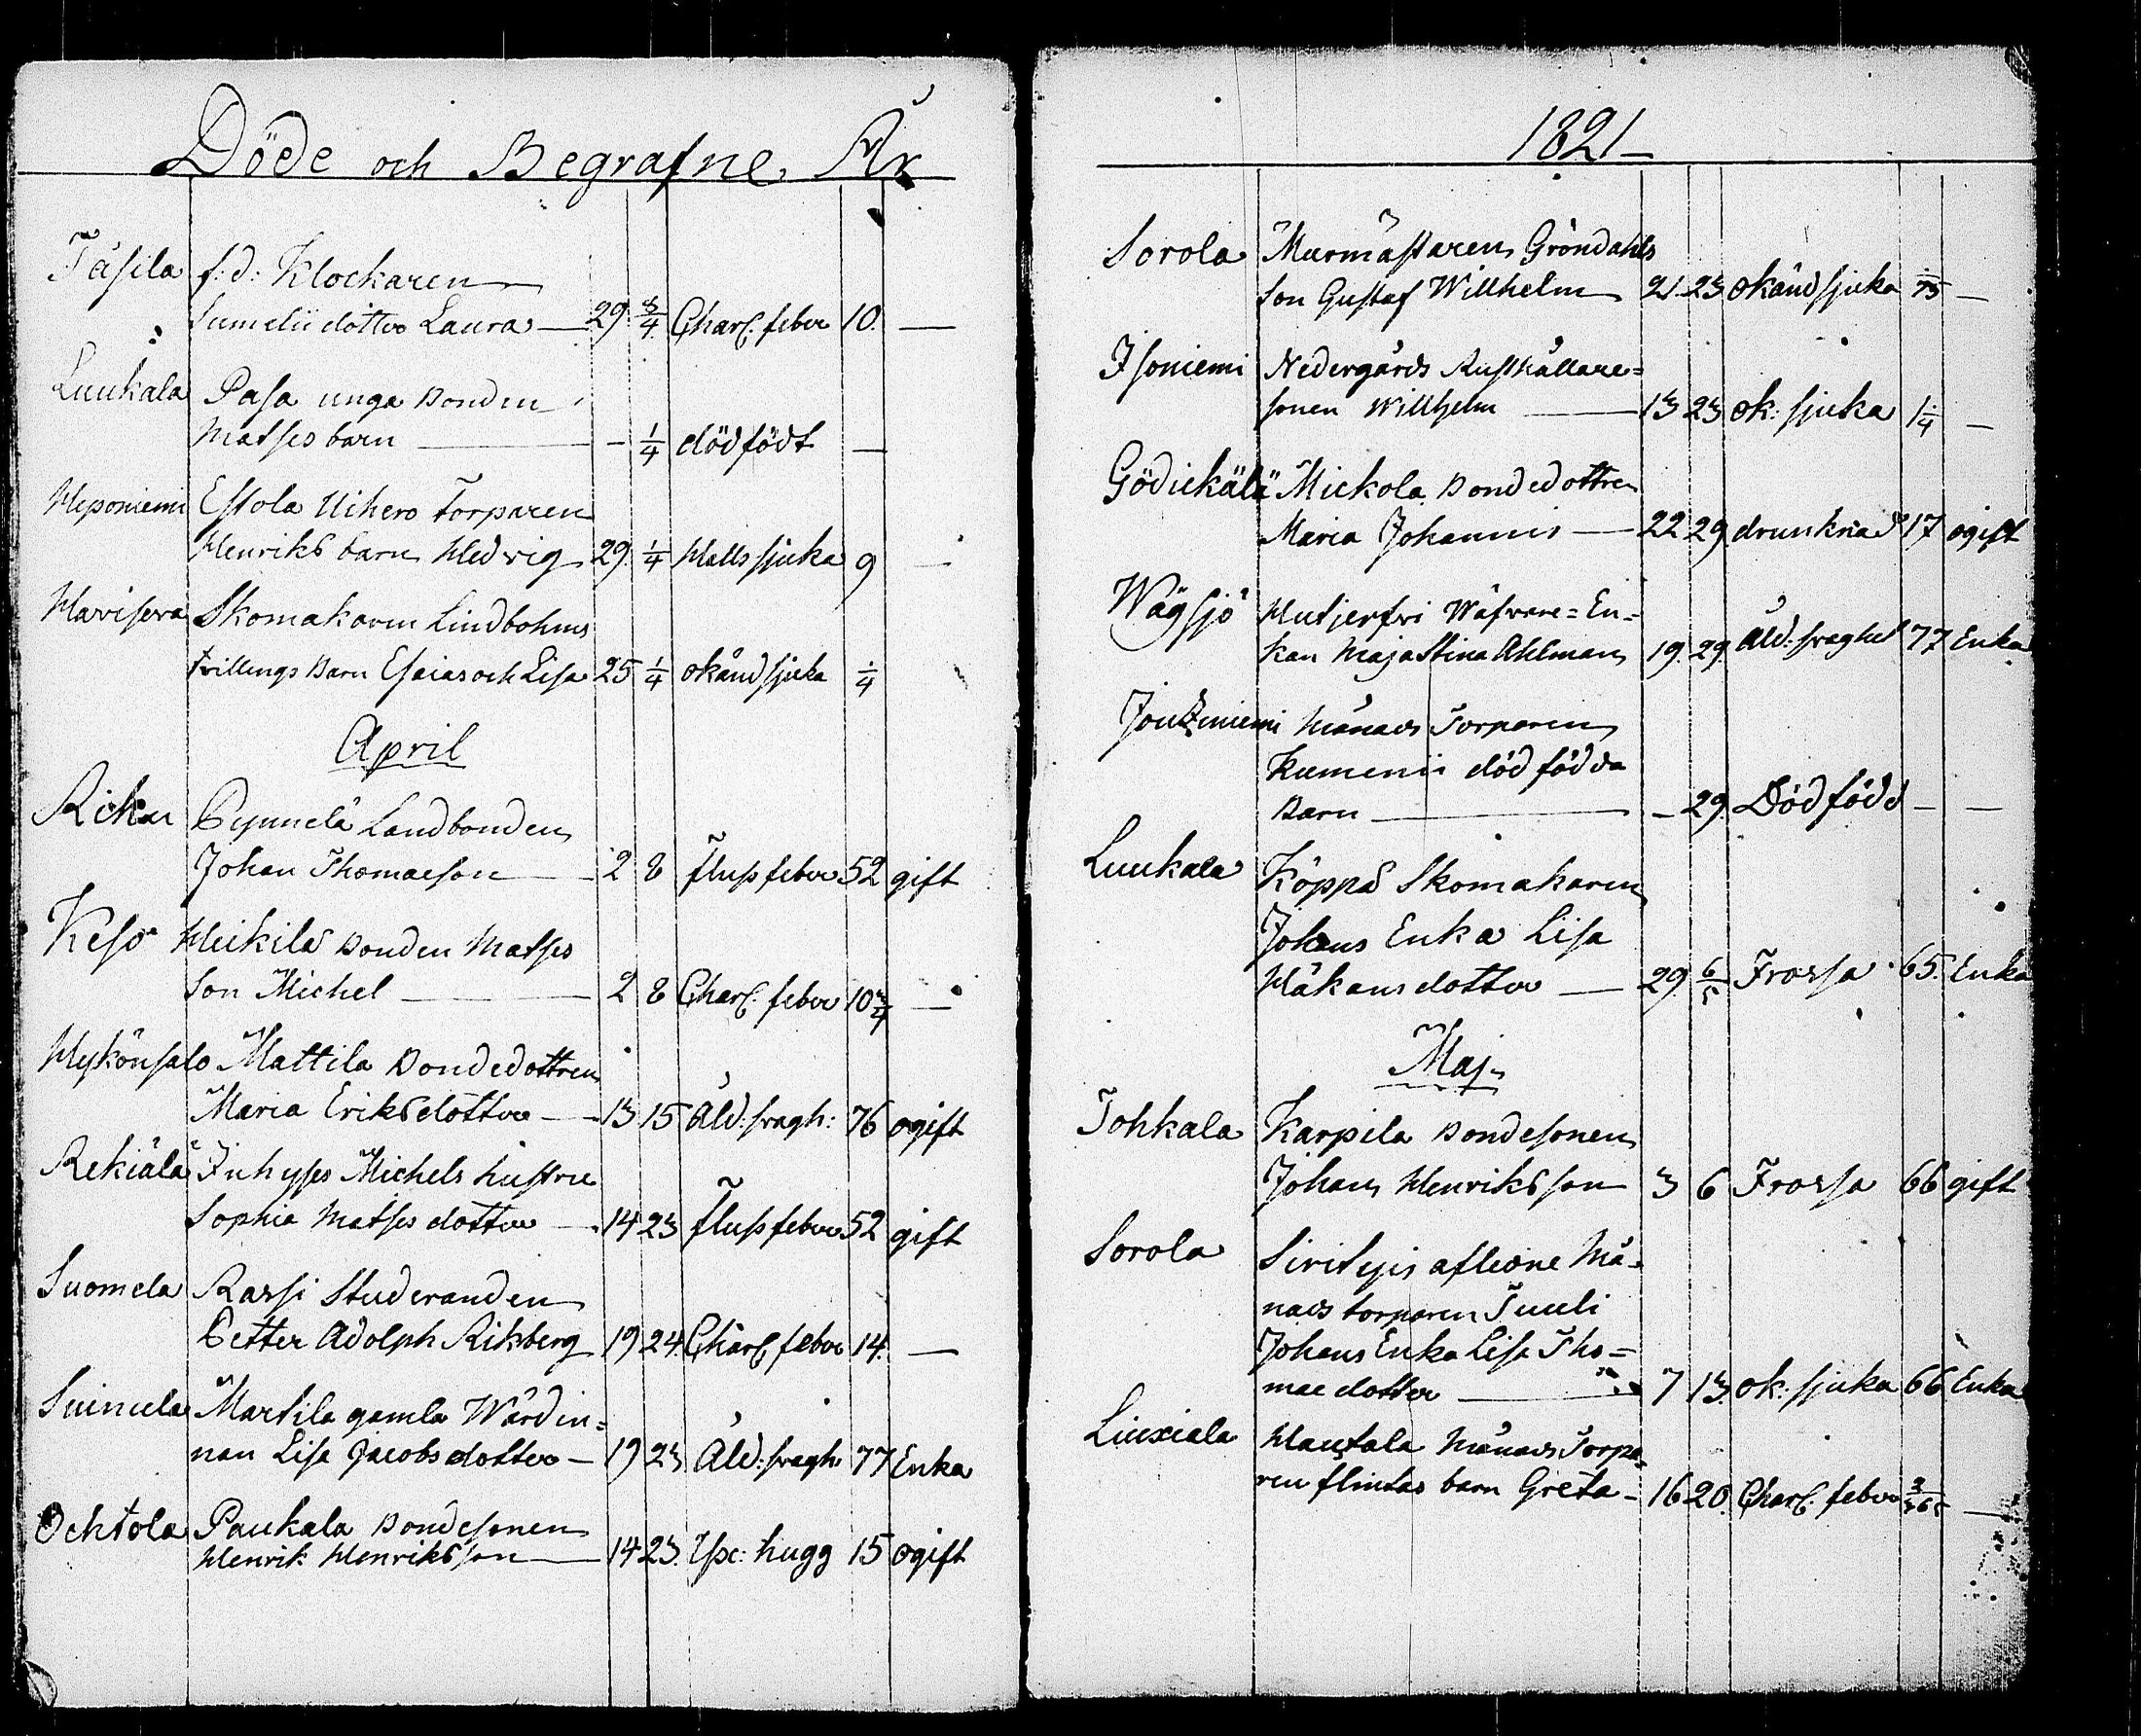 Döde och Begrafne År
Täsila f:d: Klockaren
Sumelii dotter Laura — 29. 8/4 Charl. feber 10. —
Luukala Pasa unga Bonden
Matses barn — - 1/4 dödfödt —
Heponiemi Estola Uihero Torparen
Henriks barn Hedvig 29. 1/4 Halls sjuka 9 —
Havisera Skomakaren Lindbohms
tvillings Barn Esaias och Lisa 25 1/4 okänd sjuka 1/4
April
Landbonden
Johan Thomaeson — 2 8 fluss feber 52 gift
Keso Heikilä Bonden Matses
Son Michel — 2 8 Charl. feber 10 3/4 —
Hykönsalo Mattila Bondedottren
Maria Eriksdotter — 13 15 Åld: sragh: 76 ogift
Rekiälä Inhyses Michels hustru
Sophia Matses dotter — 14 23 fluss feber 52 gift
Suomela Rassi Studeranden
Petter Adolph Rikberg 19 24. Charl. feber 14. —
Martila gamla Värdin=
nan Lisa Jacobs dotter — 19 23 Åld: sragh 77 Enka
Ochtola Paukala Bondesonen
Henrik Henriksson — 14 23. hugg 15 ogift
1821 —
Sorola Murmästaren Gröndahls
Son Gustaf Willhelm 21. 23 okänd sjuka —
Isoniemi Nedergårds Rusthållare=
sonen Willhelm — 13 23 ok: sjuka 1/4 —
Gödickälä Mickola Bondedottren
Maria Johannis — 22 29. drunknad 17 ogift
Wägsjö Hutjerfvi Wäfvare=En=
kan Maja Stina Ahlman 19. 29. Åld: sraghet 77 Enka
Månads Torparen
död födda
Barn — - 29. Dödfödd — —
Luukala Köppä Skomakaren
Johans Enka Lisa
Håkans dotter — 29. 6/5 Frossa 65. Enka
Maj
Tohkala Karpila Bondesonen
Johan Henriksson 3 6 Frossa 66 gift
Sorola afledne Må-
nads torparen Tuuli
Johans Enka Lisa Tho=
mae dotter — 7 13. ok: sjuka 66 Enka
Liuxiala Hautala Månads Torpa-
ren flintas barn Greta — 16 20. Charl. feber 3/365 —